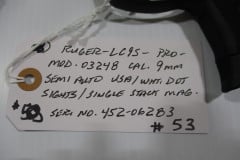 RUGER-LC9S-PRO-
MOD. 03248 CAL. 9MM
SEMI AUTO USA/WHT. DOT
SIGHTS/SINGLE STACK MAG.
SERI NO. 452-06283
# 53